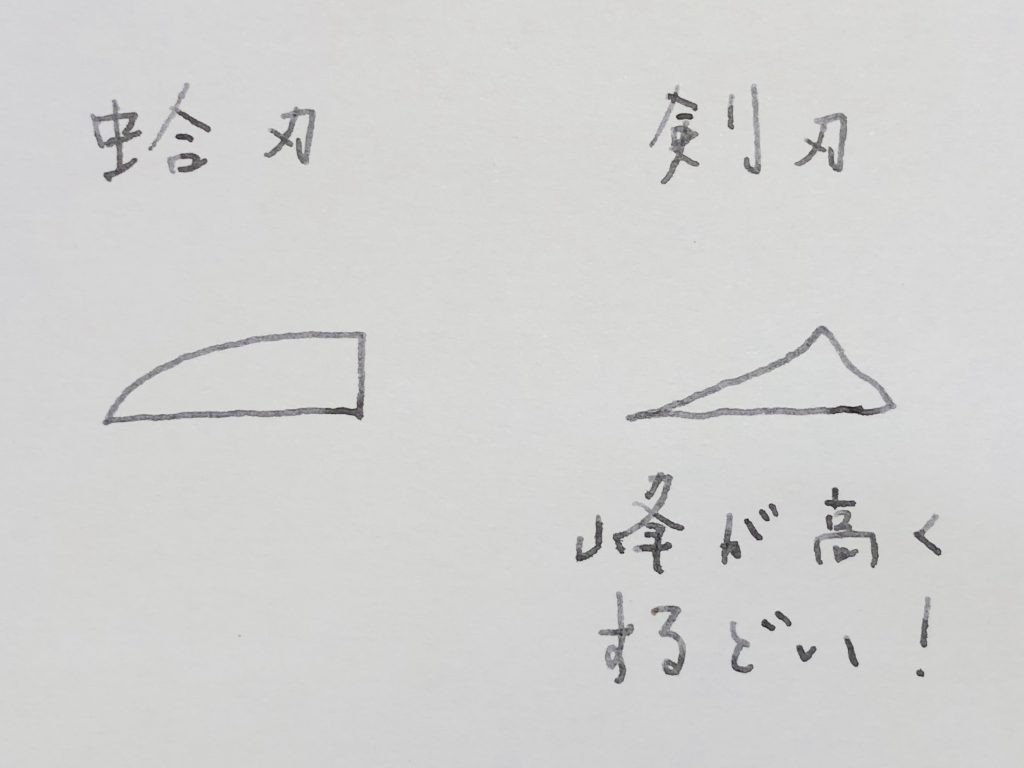 蛤刃
剣刃
峰が高く
するどい!